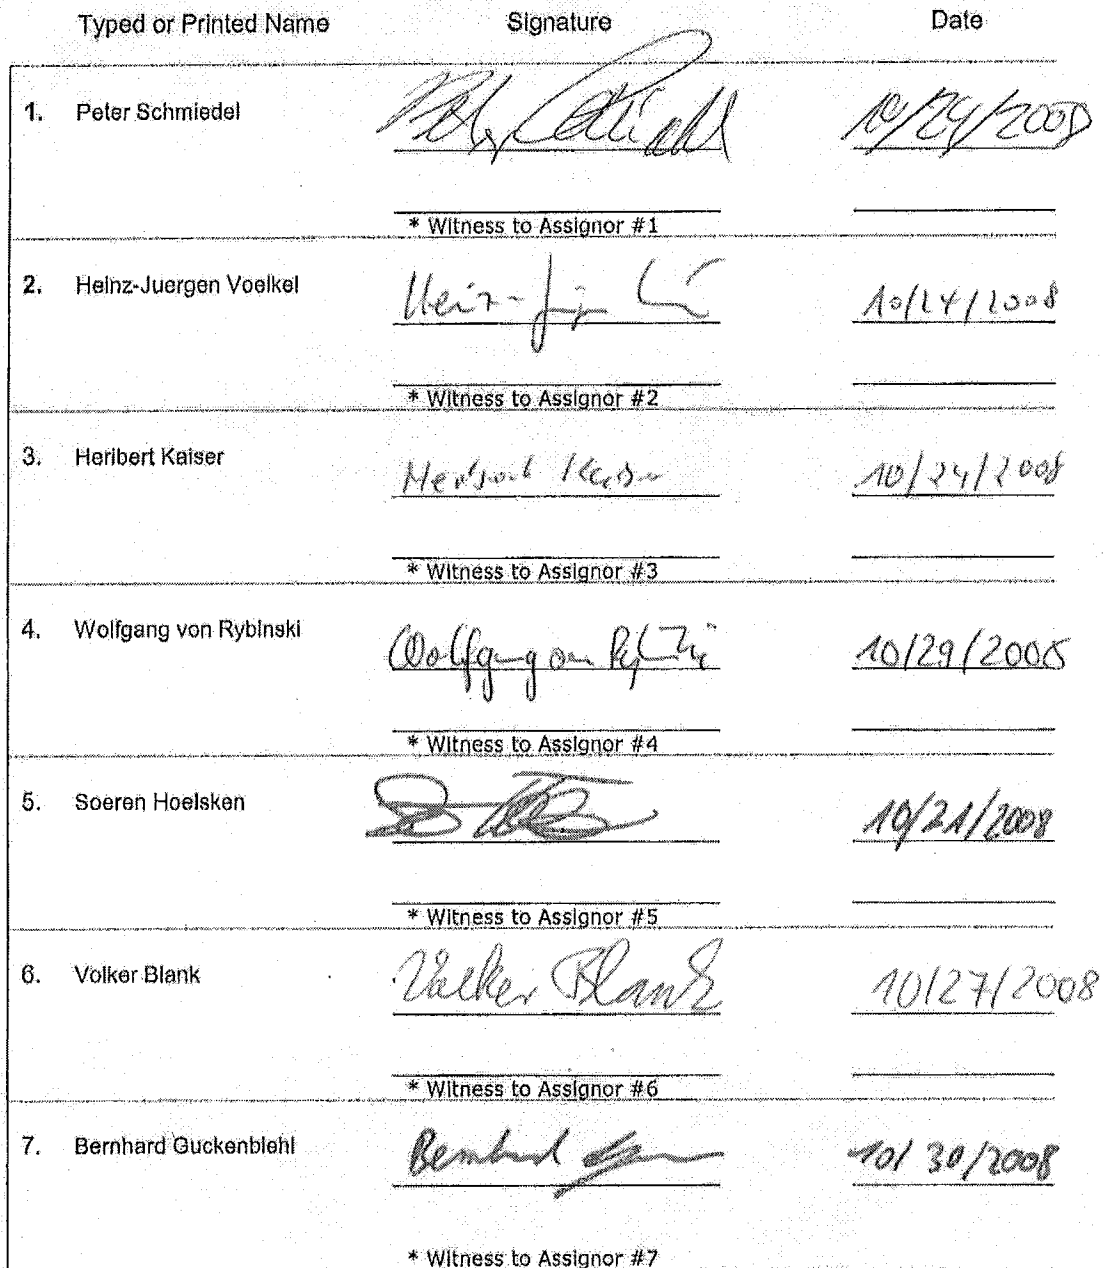 Typed or Printed Name Signature Date
1. Peter Schmiedel 10/24/2008
* Witness to Assignor #1
2. Heinz-Juergen Voelkel Heinz- 10/24/2008
* Witness to Assignor #2
3. Heribert Kaiser Heribert Kaiser 10/24/2008
* Witness to Assignor #3
4. Wolfgang von Rybinski Wolfgang von Rybinski 10/29/2008
* Witness to Assignor #4
5. Soeren Hoelsken 10/21/2008
* Witness to Assignor #5
6. Volker Blank Volker Blank 10/27/2008
* Witness to Assignor #6
7. Bernhard Guckenbiehl Bernhard 10/30/2008
* Witness to Assignor #7